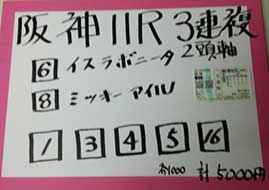 阪神11R 3連複
2頭軸
6 イスラボニータ
8 ミッキーアイル
1 3 4 5 16
各1000 計5000円